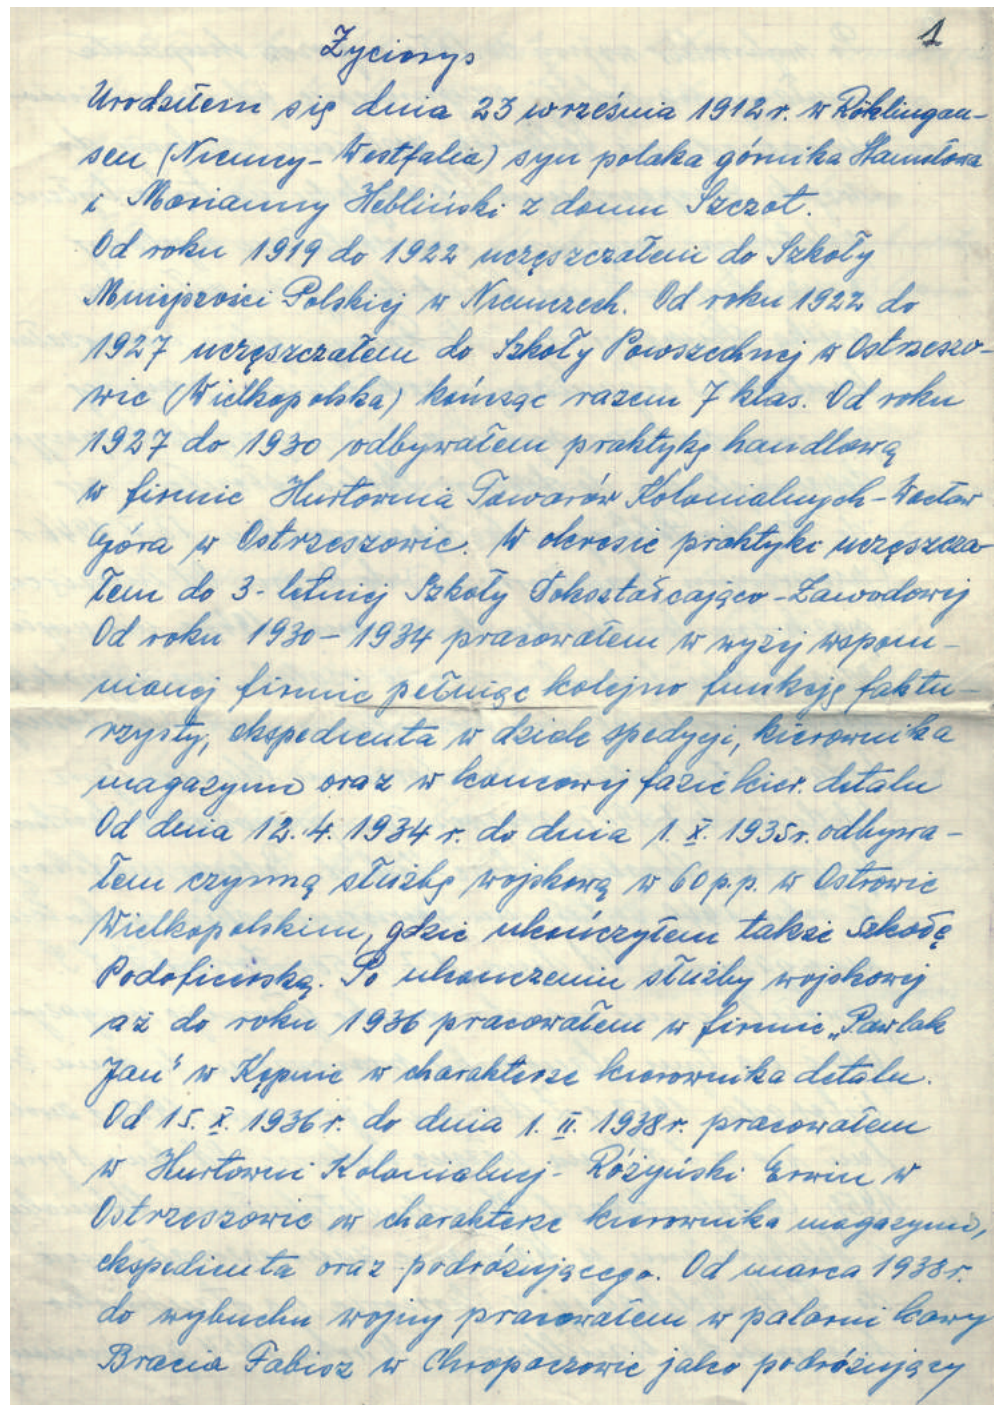 1
Życiorys
Urodziłem się dnia 23 września 1912 r. w Röklingau-
sen (Niemcy - Westfalia) syn polaka górnika Stanisława
i Marianny Hebliński z domu Szczot.
Od roku 1919 do 1922 uczęszczałem do Szkoły
Mniejszości Polskiej w Niemczech. Od roku 1922 do
1927 uczęszczałem do Szkoły Powszechnej w Ostrzeszo-
wie (Wielkopolska) kończąc razem 7 klas. Od roku
1927 do 1930 odbywałem praktykę handlową
w firmie Hurtownia Towarów Kolonialnych - Wacław
Góra w Ostrzeszowie. W okresie praktyki uczęszcza-
łem do 3-letniej Szkoły Dokształcająco-Zawodowej
Od roku 1930 - 1934 pracowałem w wyżej wspom-
nianej firmie pełniąc kolejno funkcję faktu-
rzysty, ekspedienta w dziale spedycji, kierownika
magazynu oraz w końcowej fazie kier. detalu
Od dnia 12.4.1934 r. do dnia 1.X.1935r. odbywa-
łem czynną służbę wojskową w 60 p.p. w Ostrowie
Wielkopolskim, gdzie ukończyłem także Szkołę
Podoficerską. Po ukończeniu służby wojskowej
aż do roku 1936 pracowałem w firmie „Pawlak
Jan" w Kępnie w charakterze kierownika detalu.
Od 15.X.1936 r. do dnia 1.II.1938 r. pracowałem
w Hurtowni Kolonialnej - Różyński Erwin w
Ostrzeszowie w charakterze kierownika magazynu,
ekspedienta oraz podróżującego. Od marca 1938 r.
do wybuchu wojny pracowałem w palarni kawy
Bracia Fabisz w Chropaczowie jako podróżujący